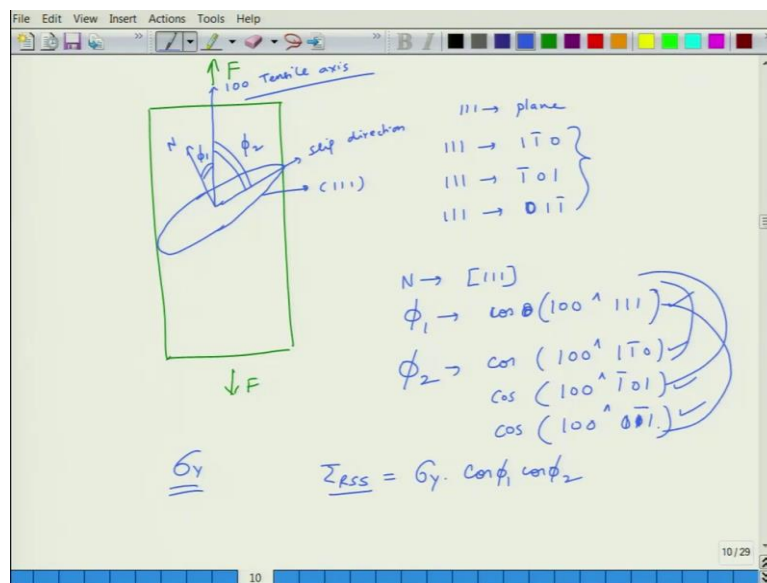 File Edit View Insert Actions Tools Help
B I
F
100 Tensile axis
N
ϕ₁
ϕ₂
slip direction
(111)
F
111 → plane
111 → 1 1̄ 0
111 → 1̄ 0 1
111 → 0 1 1̄
N → [111]
ϕ₁ → cos θ (100 ^ 111)
ϕ₂ → cos (100 ^ 1 1̄ 0)
cos (100 ^ 1̄ 0 1)
cos (100 ^ 0 1̄ 1)
σY
τRSS = σY . cosϕ₁ cosϕ₂
10 / 29
10